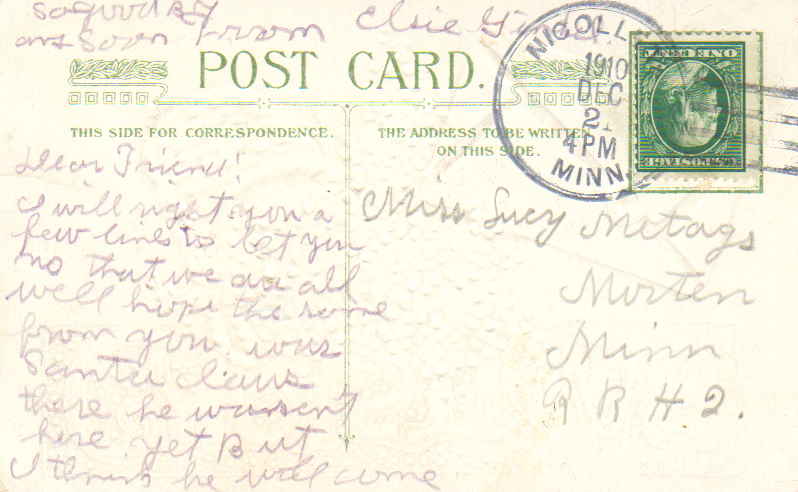 So good By
ans Soon From Elsie
POST CARD.
THIS SIDE FOR CORRESPONDENCE.
THE ADDRESS TO BE WRITTEN
ON THIS SIDE.
NICOLL
1910
DEC
4 PM
MINN
Dear Friend!
I will right you a
few lines to let you
no that we are all
well hope the same
from you was
Santa Claus
there he wasen't
here yet But
I think he will come
Miss Lucy Metags
Morten
Minn
R R # 2.